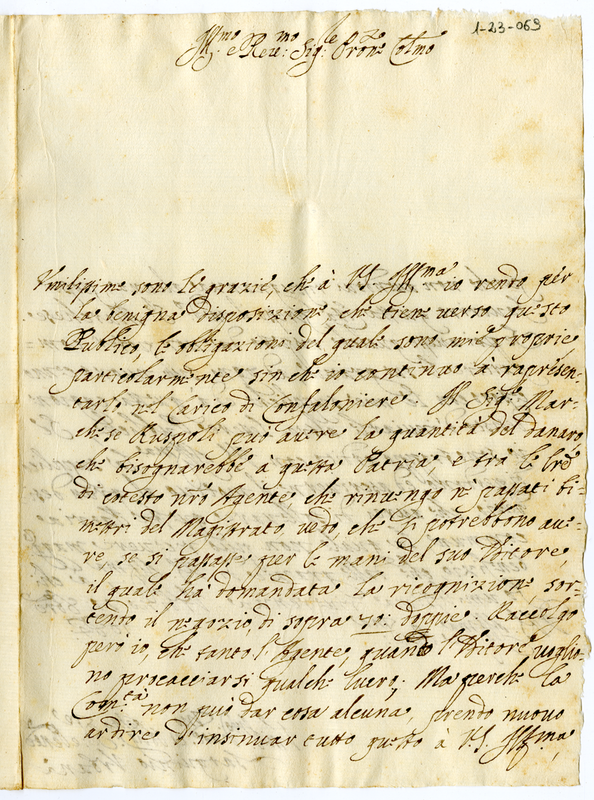 1-23-069
Ill.mo e Reu.mo Sig.le Pron.e Col.mo
Vmilissime sono le grazie, che à V.S. Ill.ma io rendo per
la benigna disposizione, che tiene verso questo
Publico, le obligazioni del quale sono mie proprie
particolarmente sin che io continuo à rapresen-
tarlo nel Carico di Confaloniere. Il Sig.e Mar-
chese Ruspoli può auere la quantità del danaro
che bisognarebbe à questa Patria, e trà le lre
di cotesto nro Agente che rinuengo ne passati bi-
mestri del Magistrato vedo, che si potrebbono aue-
re, se si passasse per le mani del suo Vditore,
il quale ha domandata la ricognizione, sor-
tendo il negozio, di sopra 70: doppie. Raccolgo
però io, che tanto l'Agente, quando l'Vditore voglio-
no procacciarsi qualche lucro; Ma perche la
Com.tà non può dar cosa alcuna, prendo nuouo
ardire d'insinuar tutto questo à V.S. Ill.ma,